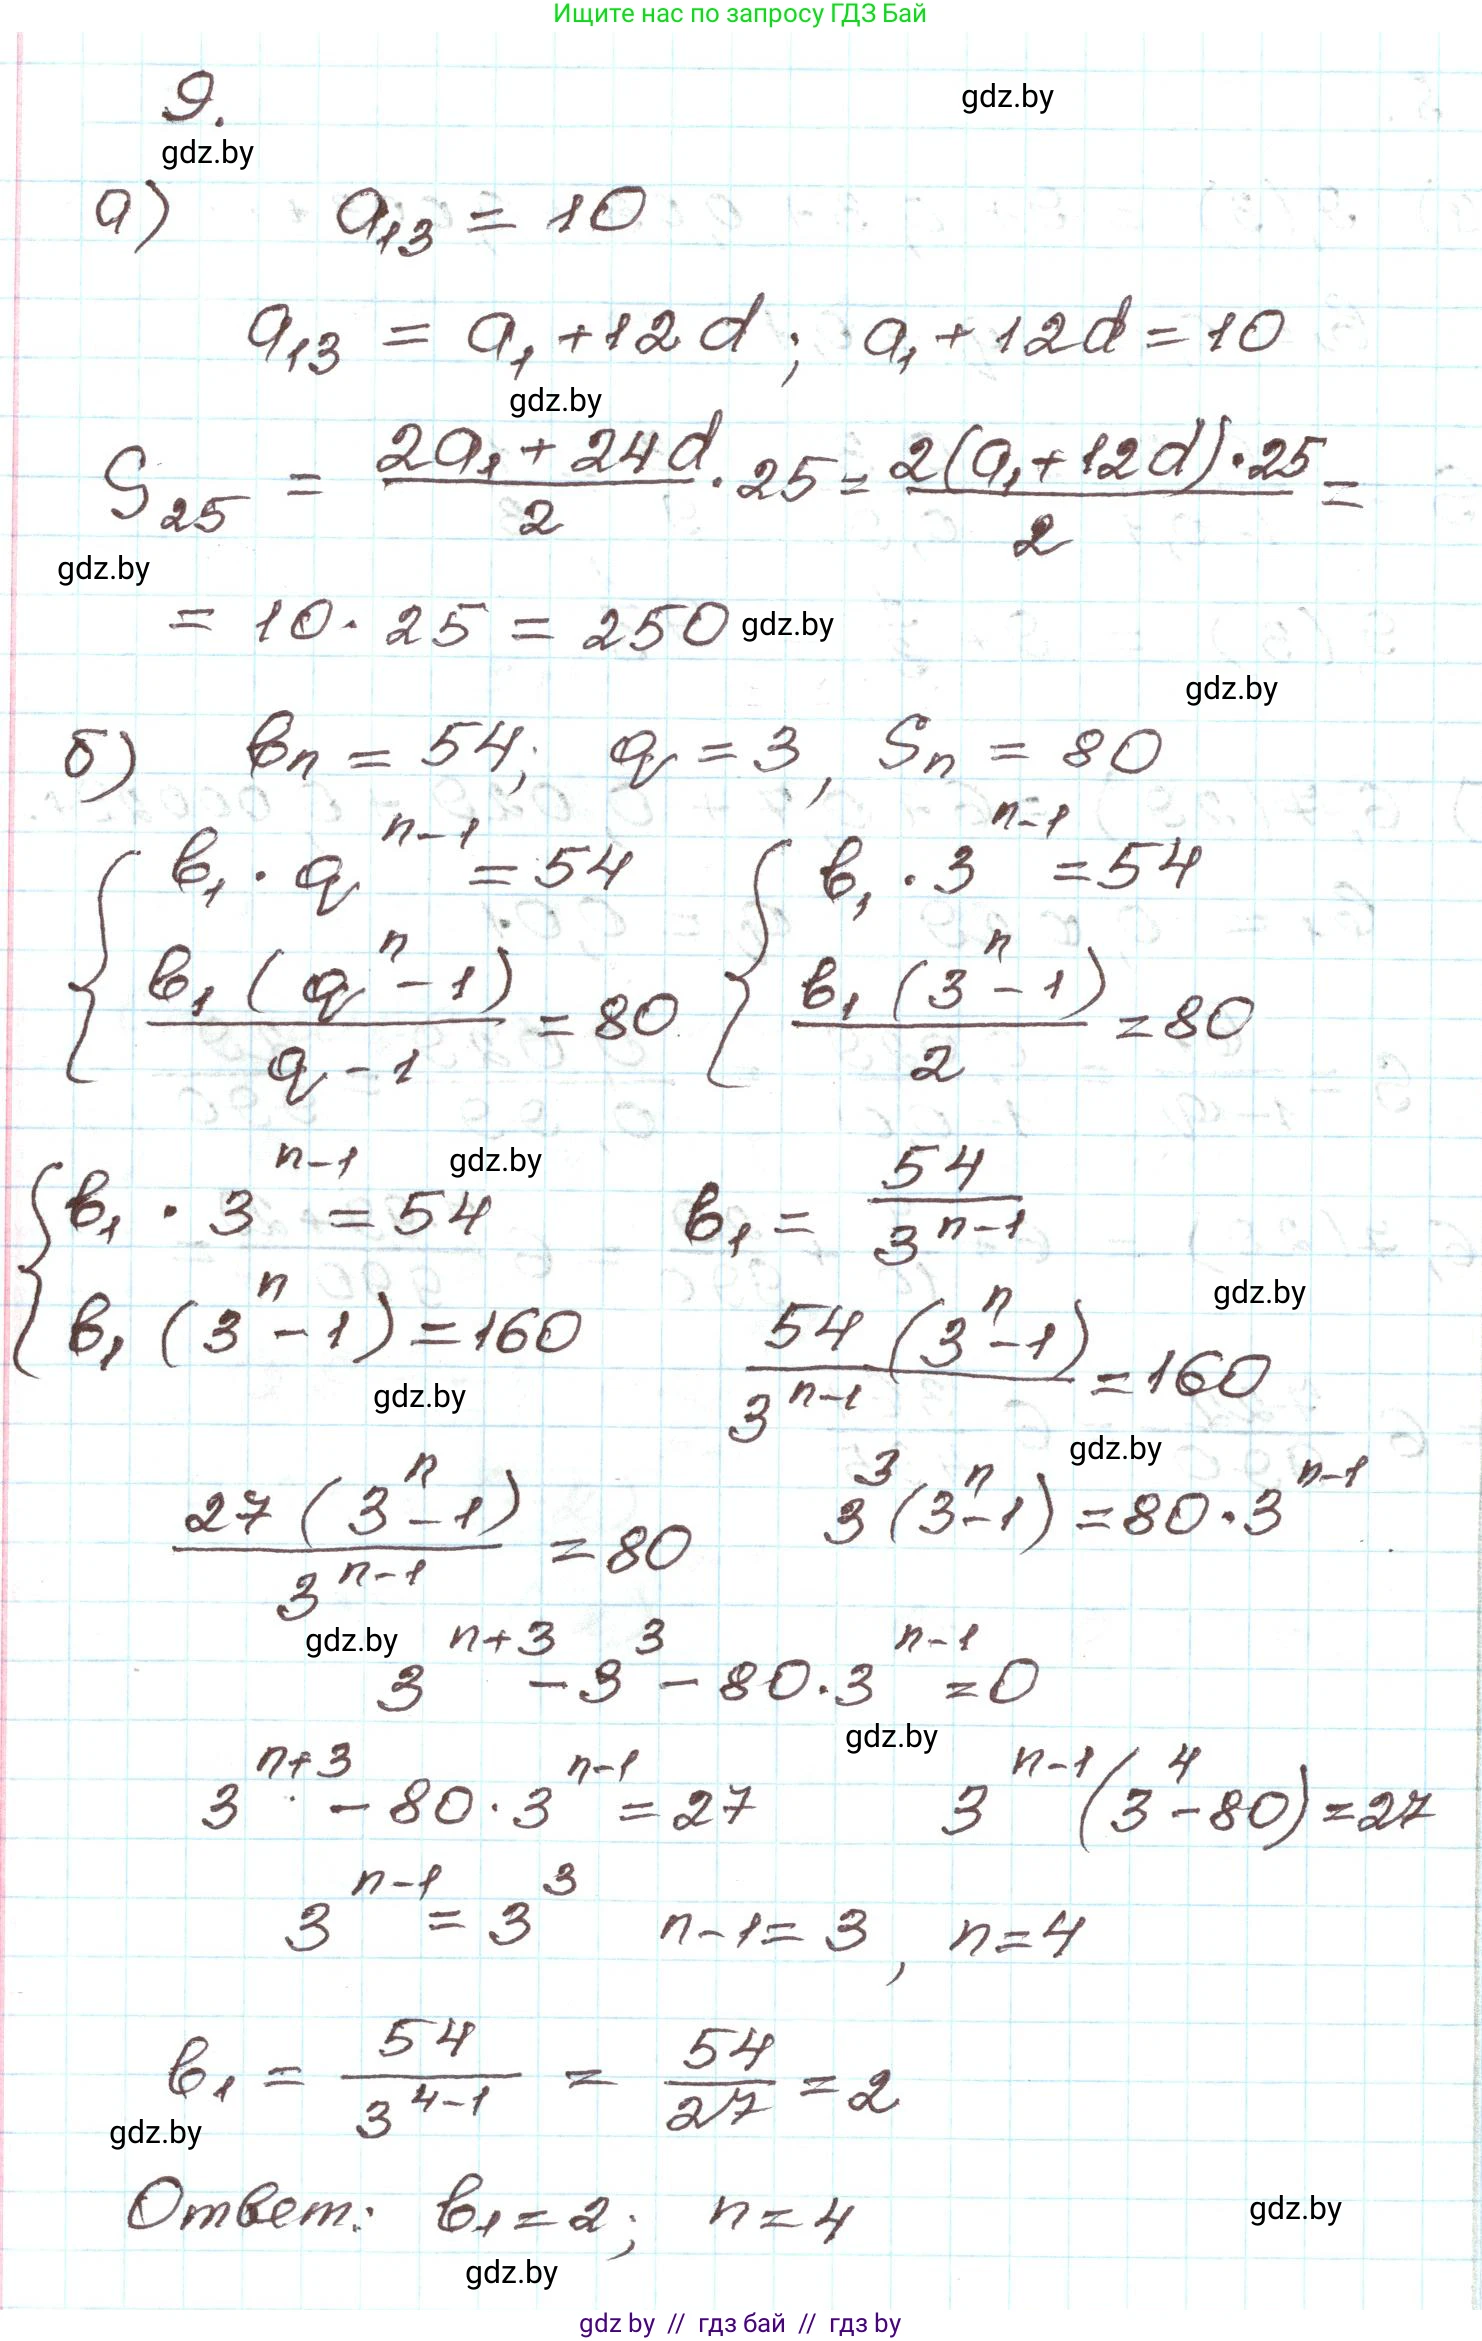 Ищите нас по запросу ГДЗ Бай
9.
gdz.by
gdz.by
а) a₁₃ = 10
a₁₃ = a₁ + 12d; a₁ + 12d = 10
gdz.by
S₂₅ = (2a₁ + 24d)/2 · 25 = 2(a₁ + 12d) · 25/2 =
gdz.by
= 10 · 25 = 250 gdz.by
gdz.by
б) bₙ = 54; q = 3, Sₙ = 80
{ b₁ · qⁿ⁻¹ = 54 { b₁ · 3ⁿ⁻¹ = 54
b₁(qⁿ - 1)/(q - 1) = 80 b₁(3ⁿ - 1)/2 = 80
gdz.by
{ b₁ · 3ⁿ⁻¹ = 54 b₁ = 54/3ⁿ⁻¹
gdz.by
b₁(3ⁿ - 1) = 160 54(3ⁿ - 1)/3ⁿ⁻¹ = 160
gdz.by
gdz.by
27(3ⁿ - 1)/3ⁿ⁻¹ = 80 3³(3ⁿ - 1) = 80 · 3ⁿ⁻¹
gdz.by
3ⁿ⁺³ - 3³ - 80 · 3ⁿ⁻¹ = 0
gdz.by
3ⁿ⁺³ - 80 · 3ⁿ⁻¹ = 27 3ⁿ⁻¹(3⁴ - 80) = 27
3ⁿ⁻¹ = 3³ n - 1 = 3, n = 4
b₁ = 54/3⁴⁻¹ = 54/27 = 2
gdz.by
Ответ: b₁ = 2; n = 4
gdz.by
gdz.by
gdz.by // гдз бай // гдз by